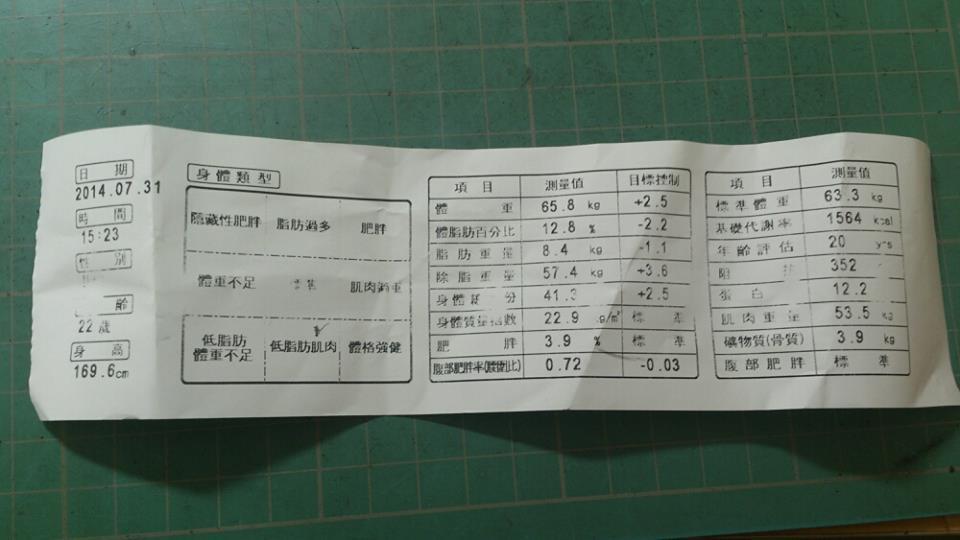 日 期
2014.07.31
時 間
15:23
性 別
齡
22 歲
身 高
169.6cm
身體類型
隱藏性肥胖 脂肪過多 肥胖
體重不足 肌肉過重
低脂肪體重不足 低脂肪肌肉 體格強健
項 目 測量值 目標控制
體 重 65.8 kg +2.5
體脂肪百分比 12.8 % -2.2
脂肪重量 8.4 kg -1.1
除脂重量 57.4 kg +3.6
身體 份 41.3 +2.5
身體質量指數 22.9 kg/m² 標 準
肥 胖 3.9 % 標 準
腹部肥胖率(腰臀比) 0.72 -0.03
項 目 測量值
標準體重 63.3 kg
基礎代謝率 1564 kcal
年齡評估 20 yrs
阻 抗 352
蛋 白 12.2
肌肉重量 53.5 kg
礦物質(骨質) 3.9 kg
腹部肥胖 標 準